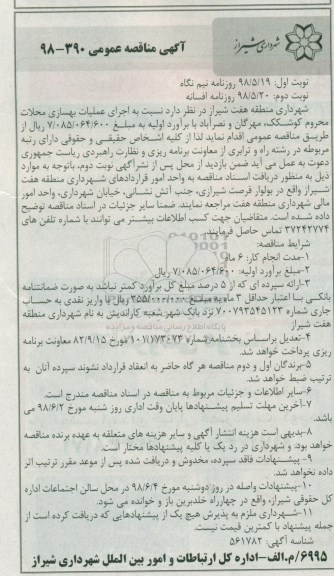 شهرداری شیراز
آگهی مناقصه عمومی ۳۹۰-۹۸
نوبت اول: ۹۸/۵/۱۹ روزنامه نیم نگاه
نوبت دوم: ۹۸/۵/۲۰ روزنامه افسانه
شهرداری منطقه هفت شیراز در نظر دارد نسبت به اجرای عملیات بهسازی محلات
محروم کوشکک، مهرگان و نصرآباد با برآورد اولیه به مبلغ ۷/۰۸۵/۰۶۴/۶۰۰ ریال از
طریق مناقصه عمومی اقدام نماید لذا از کلیه اشخاص حقیقی و حقوقی دارای رتبه
مربوطه در رشته راه و ترابری از معاونت برنامه ریزی و نظارت راهبردی ریاست جمهوری
دعوت به عمل می آید ضمن بازدید از محل پس از نشر آگهی نوبت دوم، باتوجه به موارد
ذیل به منظور دریافت اسناد مناقصه به واحد امور قراردادهای شهرداری منطقه هفت
شیراز واقع در بولوار فرصت شیرازی، جنب آتش نشانی، خیابان شهرداری، واحد امور
مالی شهرداری منطقه هفت مراجعه نمایند. ضمنا سایر جزئیات در اسناد مناقصه توضیح
داده شده است. متقاضیان جهت کسب اطلاعات بیشتر می توانند با شماره تلفن های
۳۷۲۴۲۷۷۴ تماس حاصل فرمایند.
شرایط مناقصه:
۱-مدت انجام کار: ۶ ماه
۲-مبلغ برآورد اولیه: ۷/۰۸۵/۰۶۴/۶۰۰ ریال
۳-ارائه سپرده ای که از ۵ درصد مبلغ کل برآورد کمتر نباشد به صورت ضمانتنامه
بانکی با اعتبار حداقل ۳ ماه به مبلغ ریال یا واریز نقدی به حساب
جاری شماره ۷۰۰۷۹۳۵۴۵۱۲۳ نزد بانک شهر شعبه کاراندیش به نام شهرداری منطقه
هفت شیراز
۴-تعدیل براساس بخشنامه شماره ۱۰۱/۱۷۳۰۷۳ مورخ ۸۲/۹/۱۵ معاونت برنامه
ریزی پرداخت خواهد شد.
۵-برندگان اول و دوم مناقصه هر گاه حاضر به انعقاد قرارداد نشوند سپرده آنان به
ترتیب ضبط خواهد شد.
۶-سایر اطلاعات و جزئیات مربوط به مناقصه در اسناد مناقصه مندرج است.
۷-آخرین مهلت تسلیم پیشنهادها پایان وقت اداری روز شنبه مورخ ۹۸/۶/۲ می
باشد.
۸-بدیهی است هزینه انتشار آگهی و سایر هزینه های متعلقه به عهده برنده مناقصه
خواهد بود. و شهرداری در رد یک یا کلیه پیشنهادها مختار است.
۹-پیشنهادات فاقد سپرده، مخدوش و دریافت شده پس از موعد مقرر ترتیب اثر
داده نخواهد شد.
۱۰-پیشنهادات واصله در روز دوشنبه مورخ ۹۸/۶/۴ در محل سالن اجتماعات اداره
کل حقوقی شیراز، واقع در چهارراه خلدبرین باز و خوانده می شود.
۱۱-شهرداری ملزم به پذیرش هیچ یک از پیشنهادهایی که دریافت کرده است از
جمله پیشنهاد با کمترین قیمت نیست.
شناسه آگهی: ۵۶۱۷۸۲
۶۹۹۵/م.الف-اداره کل ارتباطات و امور بین الملل شهرداری شیراز